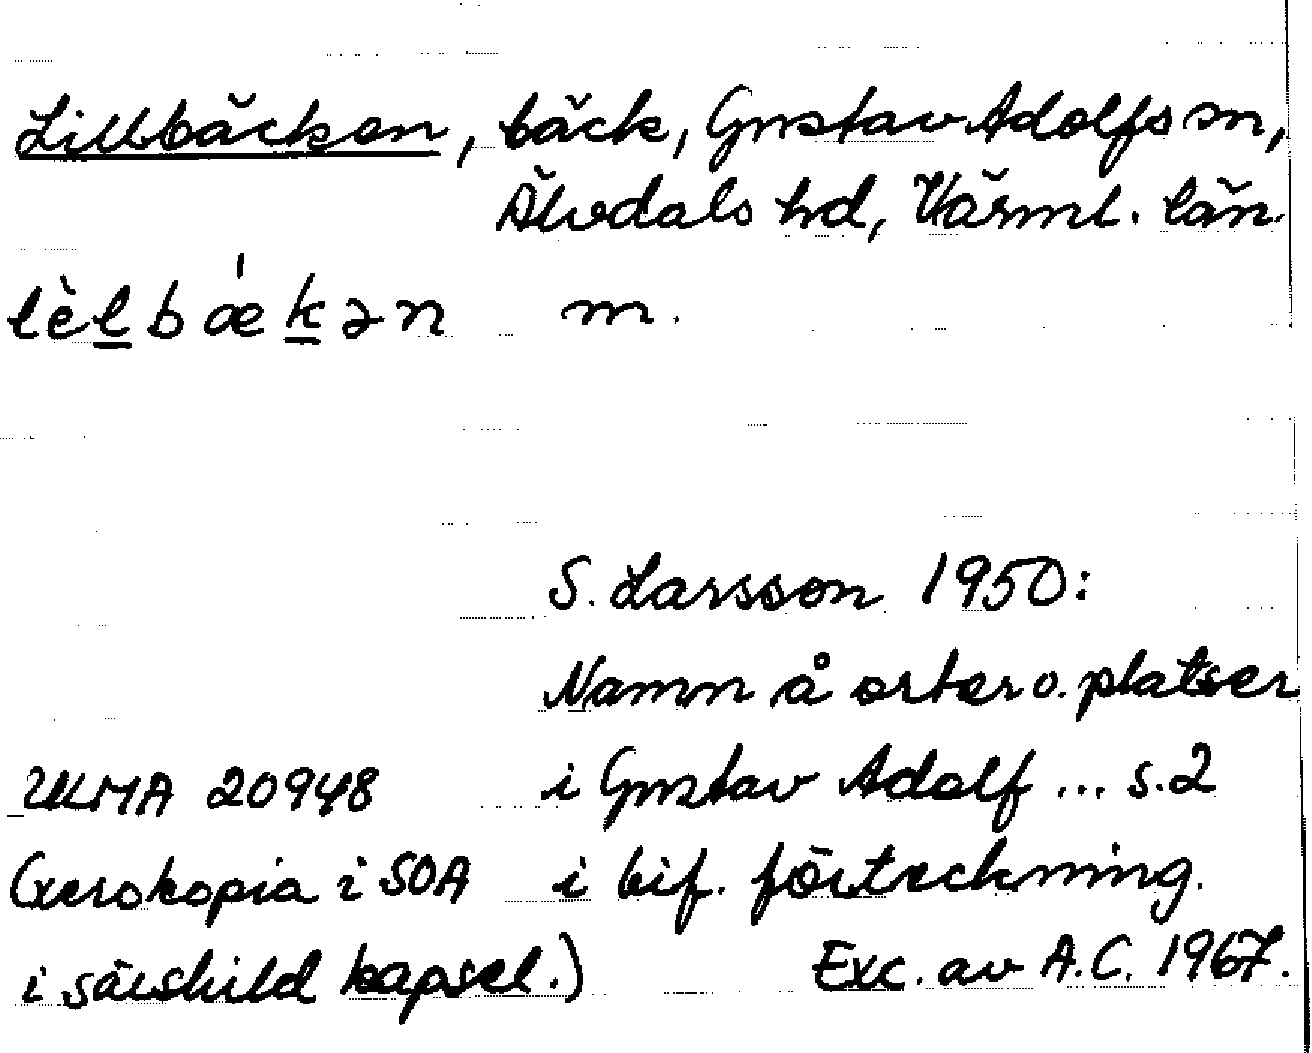 Lillbäcken, bäck, Gustav Adolfs sn,
Älvdals hd, Värml. län
lèl̲bæ̍k̲ən m.
S. Larsson 1950:
Namn å orter o. platser
i Gustav Adolf ... s.2
i bif. förteckning.
Exc. av A.C. 1967.
ULMA 20948
(Xerokopia i SOA
i särskild kapsel.)